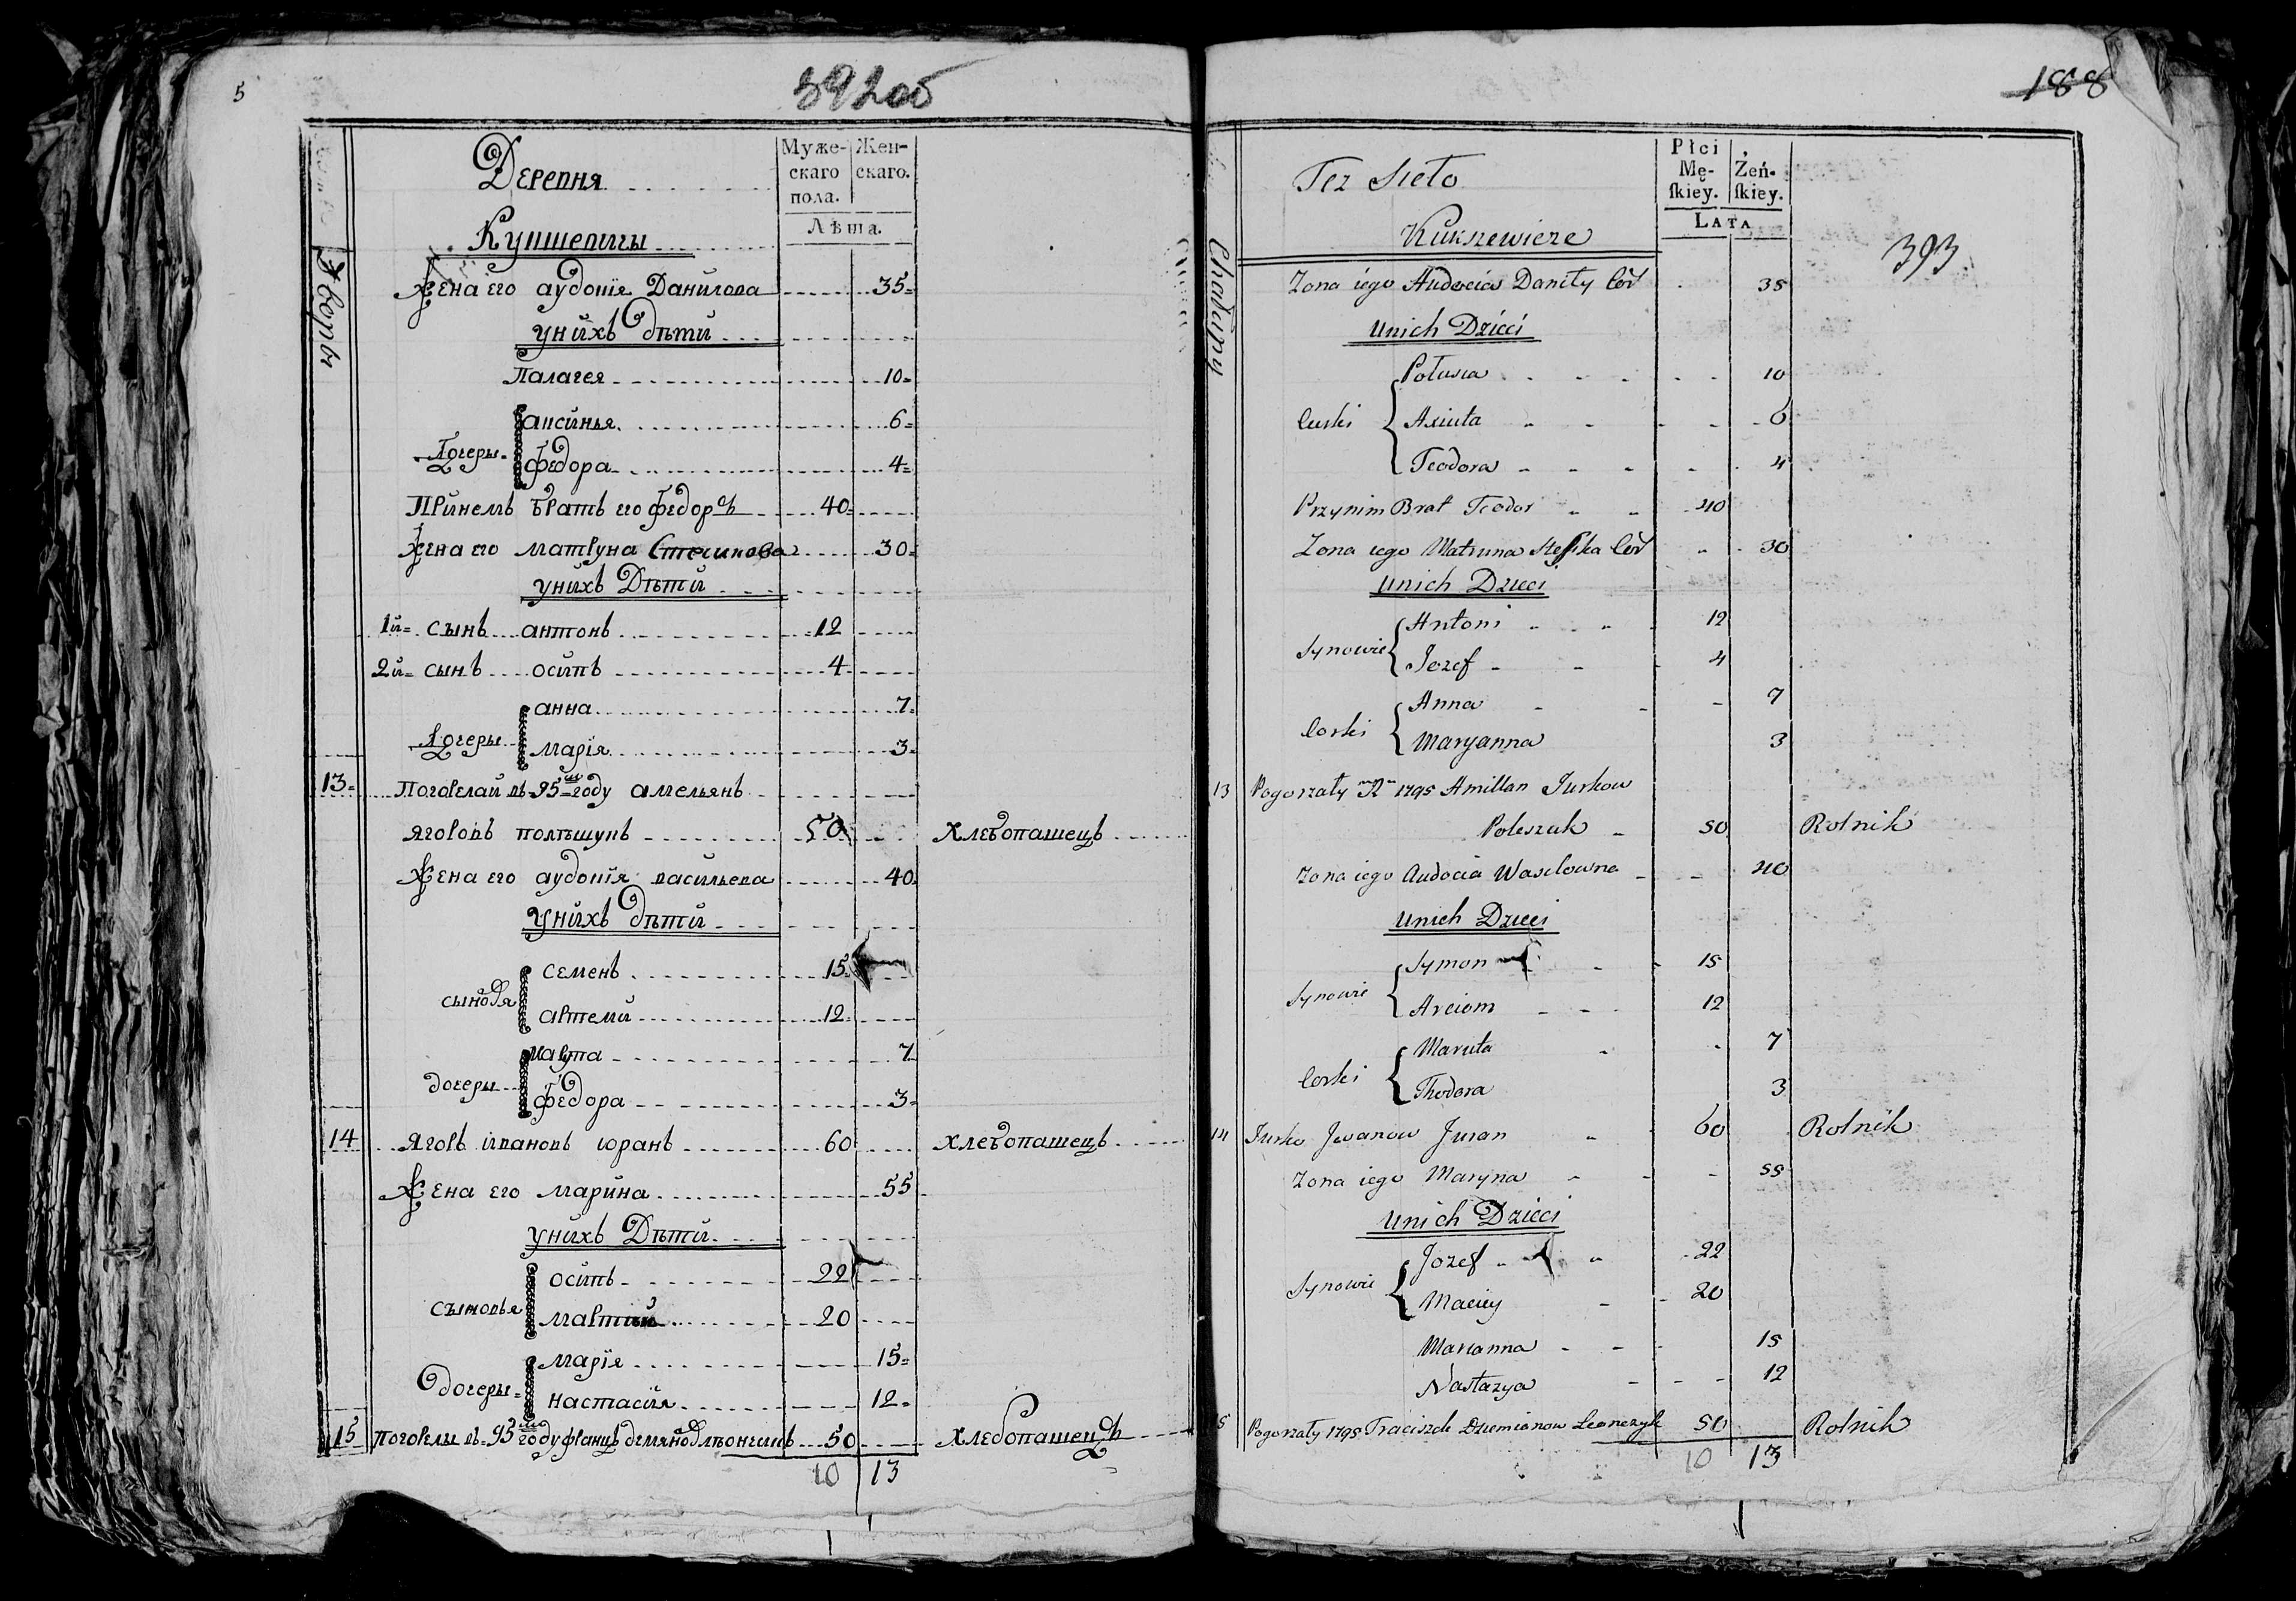 5
392об
Деревня
Мужескаго пола. Женскаго.
Лѣта.
Купшевичы
Дворы
Жена его аудотія Данилова 35
унихъ дѣти
Палагея 10
аксинья 6
Дочеры
Федора 4
Принемъ братъ его федоръ 40
Жена его матруна 30
унихъ Дѣти
1й сынъ антонъ 12
2й сынъ осипъ 4
анна 7
Дочеры
марія 3
13 Погорелай въ 95м году амельянъ
яговъ полѣшукъ 50 хлебопашецъ
Жена его аудотія васильева 40
унихъ дѣти
семенъ 15
сыновя
артеми 12
марта 7
дочеры
федора 3
14 Ягоръ ивановъ юранъ 60 хлебопашецъ
Жена его марина 55
унихъ Дѣти
осипъ 22
сыновья
20
марія 15
дочеры
настасия 12
15 погорелы въ 95м году 50 хлебопашецъ
10 13
188
393
Tez Sieło
Płci Męſkiey. Żeńſkiey.
LATA
Kukszewicze
Chałupy
Zona iego Audocia Daniły Cór 35
Unich Dzieci
Połusia 10
Curki
Axiuta 6
Teodora 4
Przynim Brat Teodor 40
Zona iego Matruna Cór 30
Unich Dzieci
Antoni 12
Synowie
Jozef 4
Anna 7
Corki
Maryanna 3
13 Pogorzały R 1795 Amillan Jurkow
Poleszuk 50 Rolnik
Zona iego Audocia Wasilowna 40
Unich Dzieci
Symon 15
Synowie
Arciom 12
Maruta 7
Corki
Thodora 3
14 Jurko Jwanow Juran 60 Rolnik
Zona iego Maryna 55
Unich Dzieci
Jozef 22
Synowie
Maciey 20
Marianna 15
Nastazya 12
5 Pogorzały 1795 Fraciszek Dziemianow Leonczyk 50 Rolnik
10 13